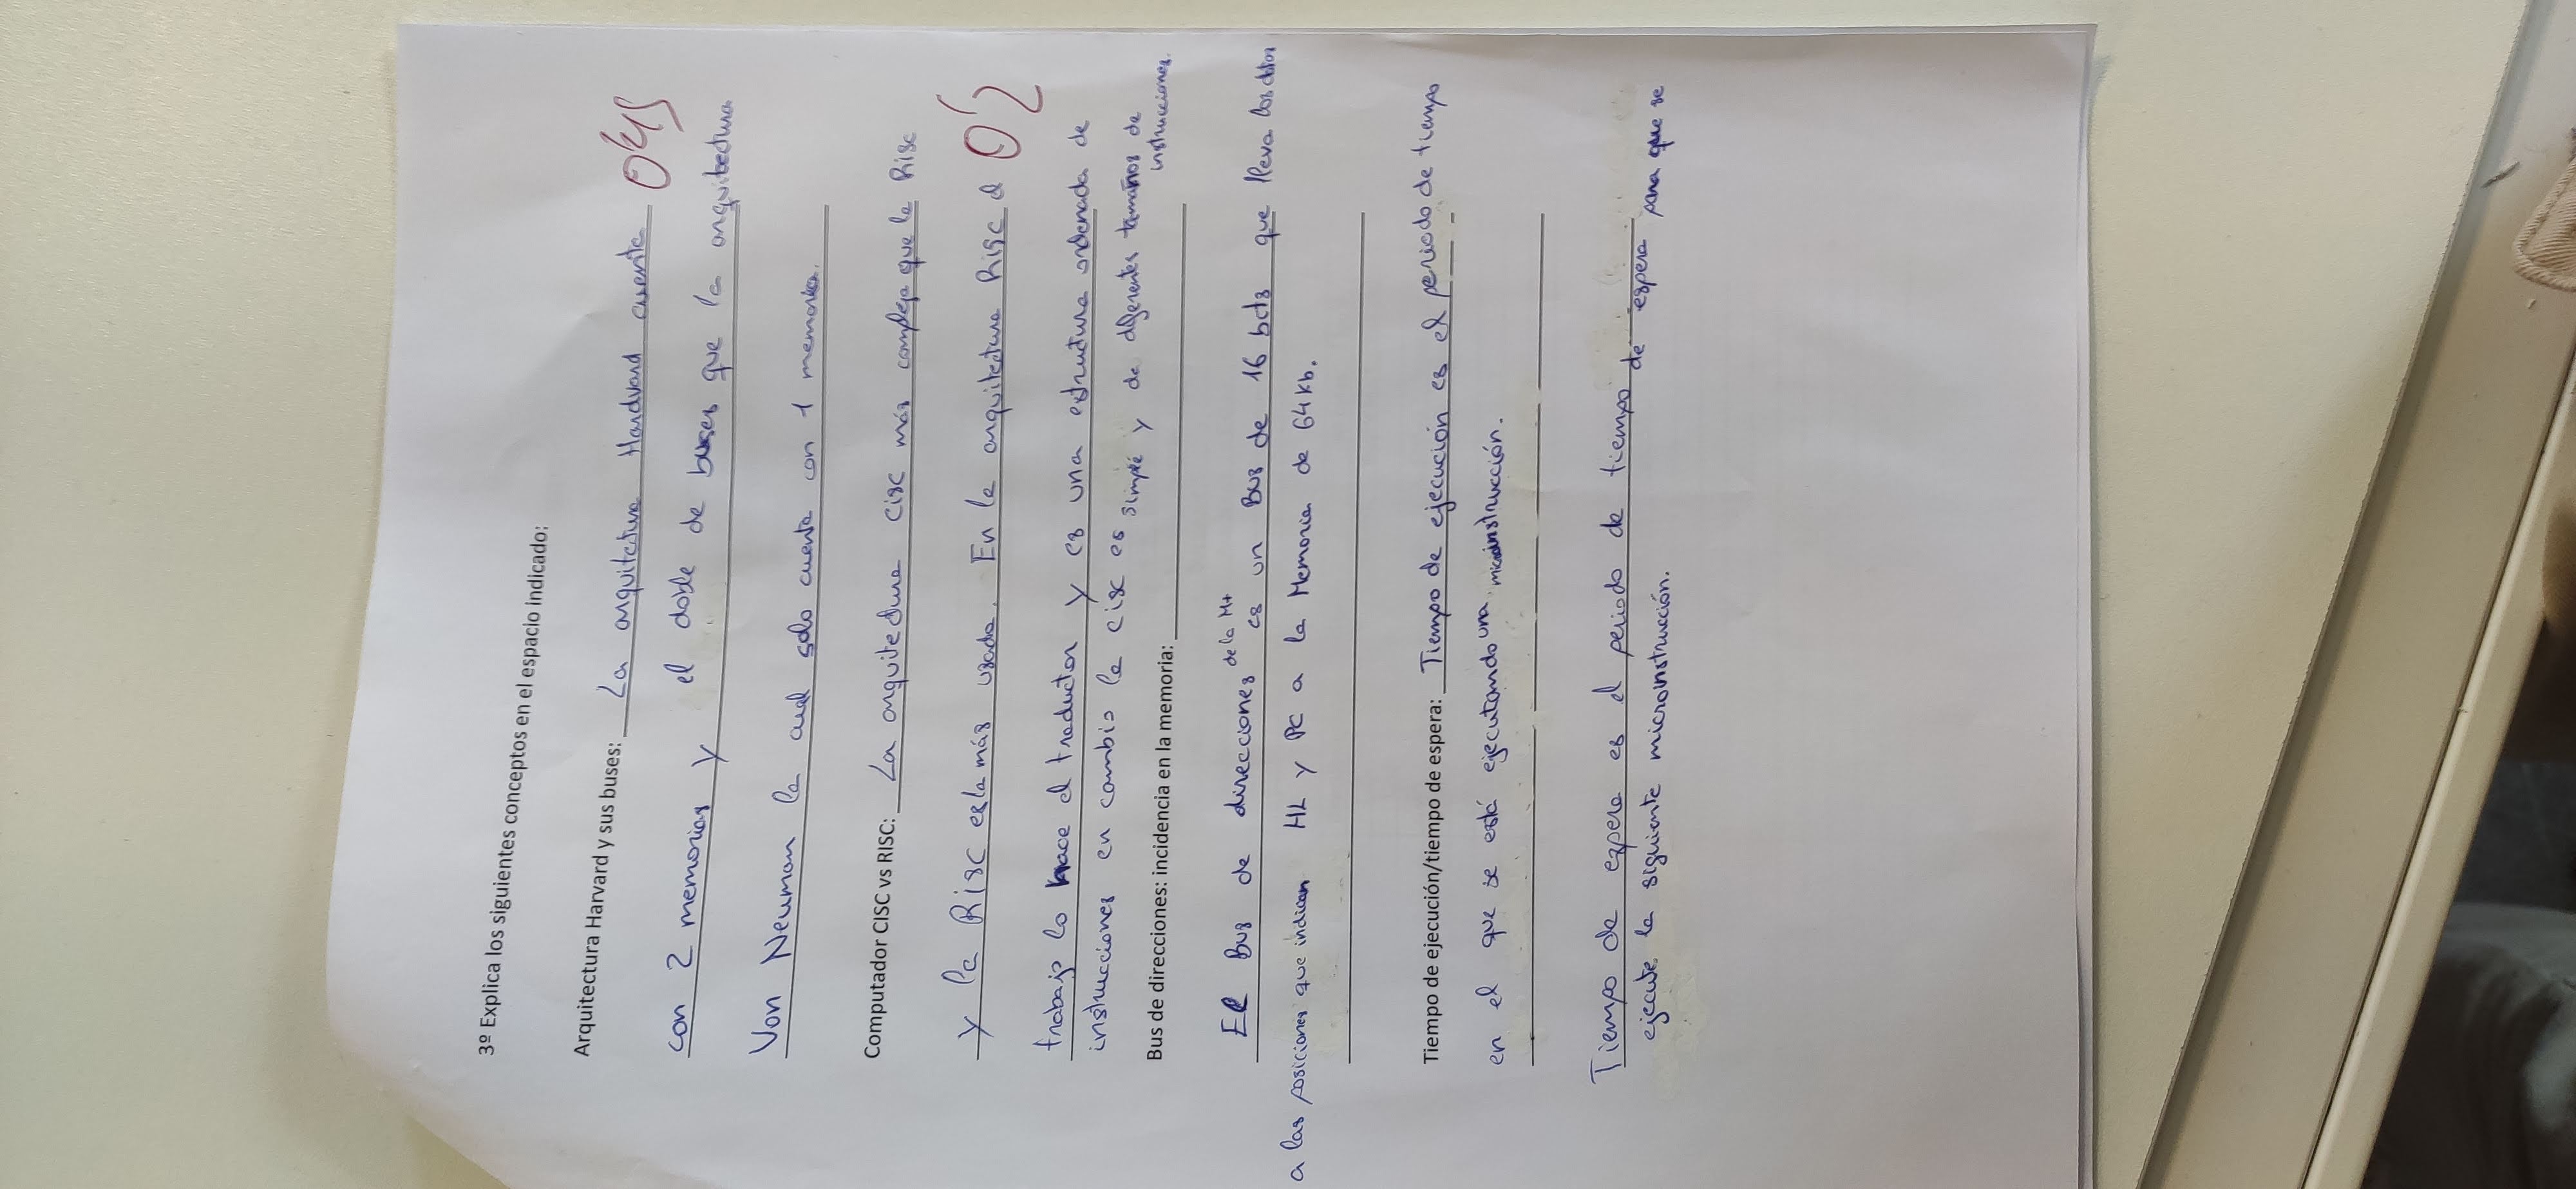 3º Explica los siguientes conceptos en el espacio indicado:
Arquitectura Harvard y sus buses: La arquitetura Hardvard cuenta 0'45
con 2 memorias y el doble de buses que la arquitectura
Von Neuman la cual solo cuenta con 1 memoria.
Computador CISC vs RISC: La arquitectura cisc más compleja que la Risc
y la Risc es la más usada. En la arquitectura Risc el 0'2
trabajo lo hace el traductor y es una estructura ordenada de
instrucciones en cambio la cisc es simple y de diferentes tamaños de
instrucciones.
Bus de direcciones: incidencia en la memoria:
El Bus de direcciones de la M+ es un Bus de 16 bits que lleva los datos
a las posiciones que indican HL y PC a la Memoria de 64Kb.
Tiempo de ejecución/tiempo de espera: Tiempo de ejecución es el periodo de tiempo
en el que se está ejecutando una microinstrucción.
Tiempo de espera es el periodo de tiempo de espera para que se
ejecute la siguiente microinstrucción.